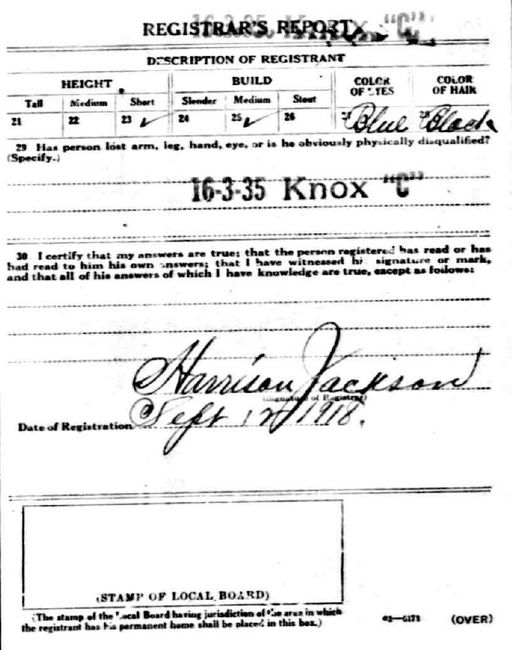 16-3-35 Knox "C"
REGISTRAR'S REPORT
DESCRIPTION OF REGISTRANT
HEIGHT BUILD COLOR OF EYES COLOR OF HAIR
Tall Medium Short Slender Medium Stout
21 22 23 ✓ 24 25 ✓ 26 27 Blue 28 Black
29 Has person lost arm, leg, hand, eye, or is he obviously physically disqualified?
(Specify.)
16-3-35 Knox "C"
30 I certify that my answers are true; that the person registered has read or has
had read to him his own answers; that I have witnessed his signature or mark,
and that all of his answers of which I have knowledge are true, except as follows:
Harrison Jackson
(Signature of Registrar)
Date of Registration Sept 12 1918.
(STAMP OF LOCAL BOARD)
(The stamp of the Local Board having jurisdiction of the area in which
the registrant has his permanent home shall be placed in this box.)
03-6171 (OVER)